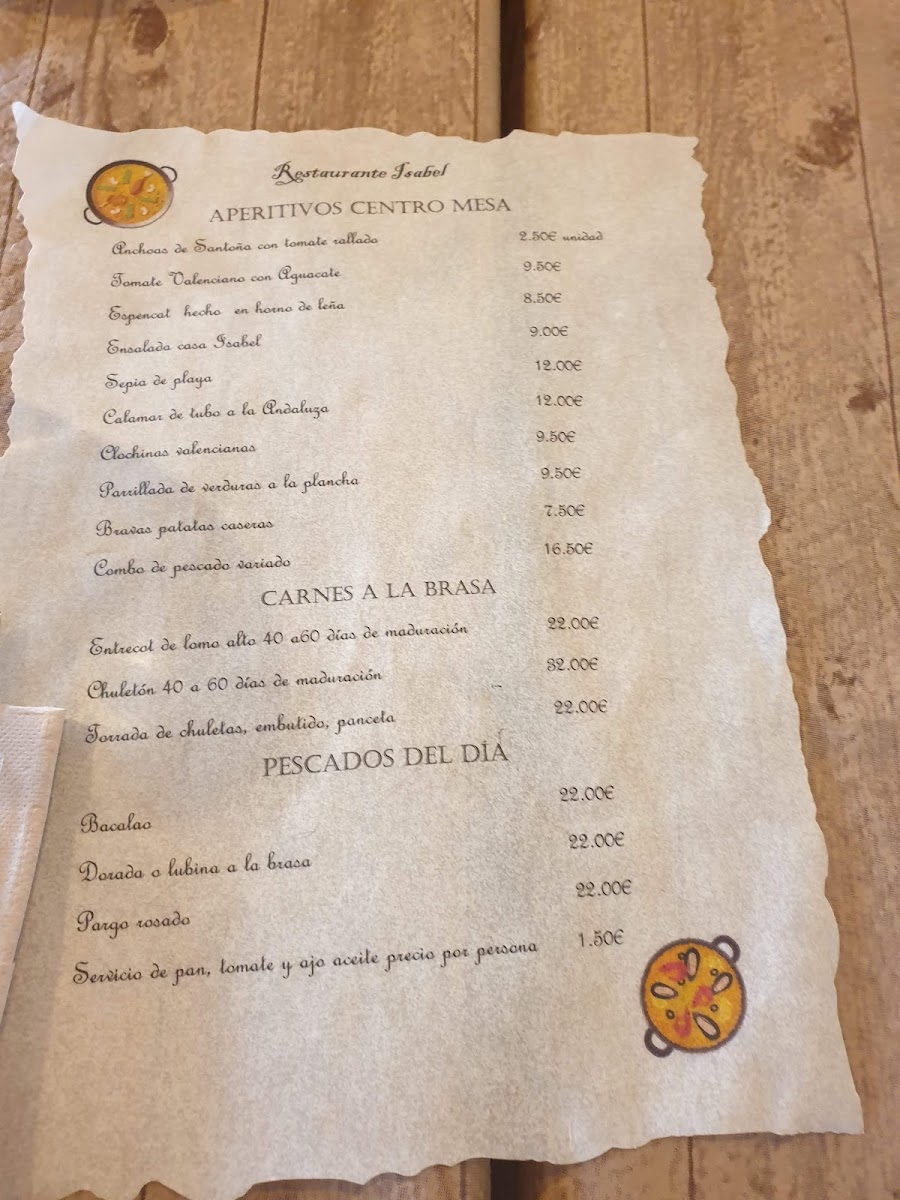 Restaurante Isabel
APERITIVOS CENTRO MESA
Anchoas de Santoña con tomate rallado 2.50€ unidad
Tomate Valenciano con Aguacate 9.50€
Espencat hecho en horno de leña 8.50€
Ensalada casa Isabel 9.00€
Sepia de playa 12.00€
Calamar de tubo a la Andaluza 12.00€
Clochinas valencianas 9.50€
Parrillada de verduras a la plancha 9.50€
Bravas patatas caseras 7.50€
Combo de pescado variado 16.50€
CARNES A LA BRASA
Entrecot de lomo alto 40 a60 días de maduración 22.00€
Chuletón 40 a 60 días de maduración 32.00€
Torrada de chuletas, embutido, panceta 22.00€
PESCADOS DEL DÍA
Bacalao 22.00€
Dorada o lubina a la brasa 22.00€
Pargo rosado 22.00€
Servicio de pan, tomate y ajo aceite precio por persona 1.50€